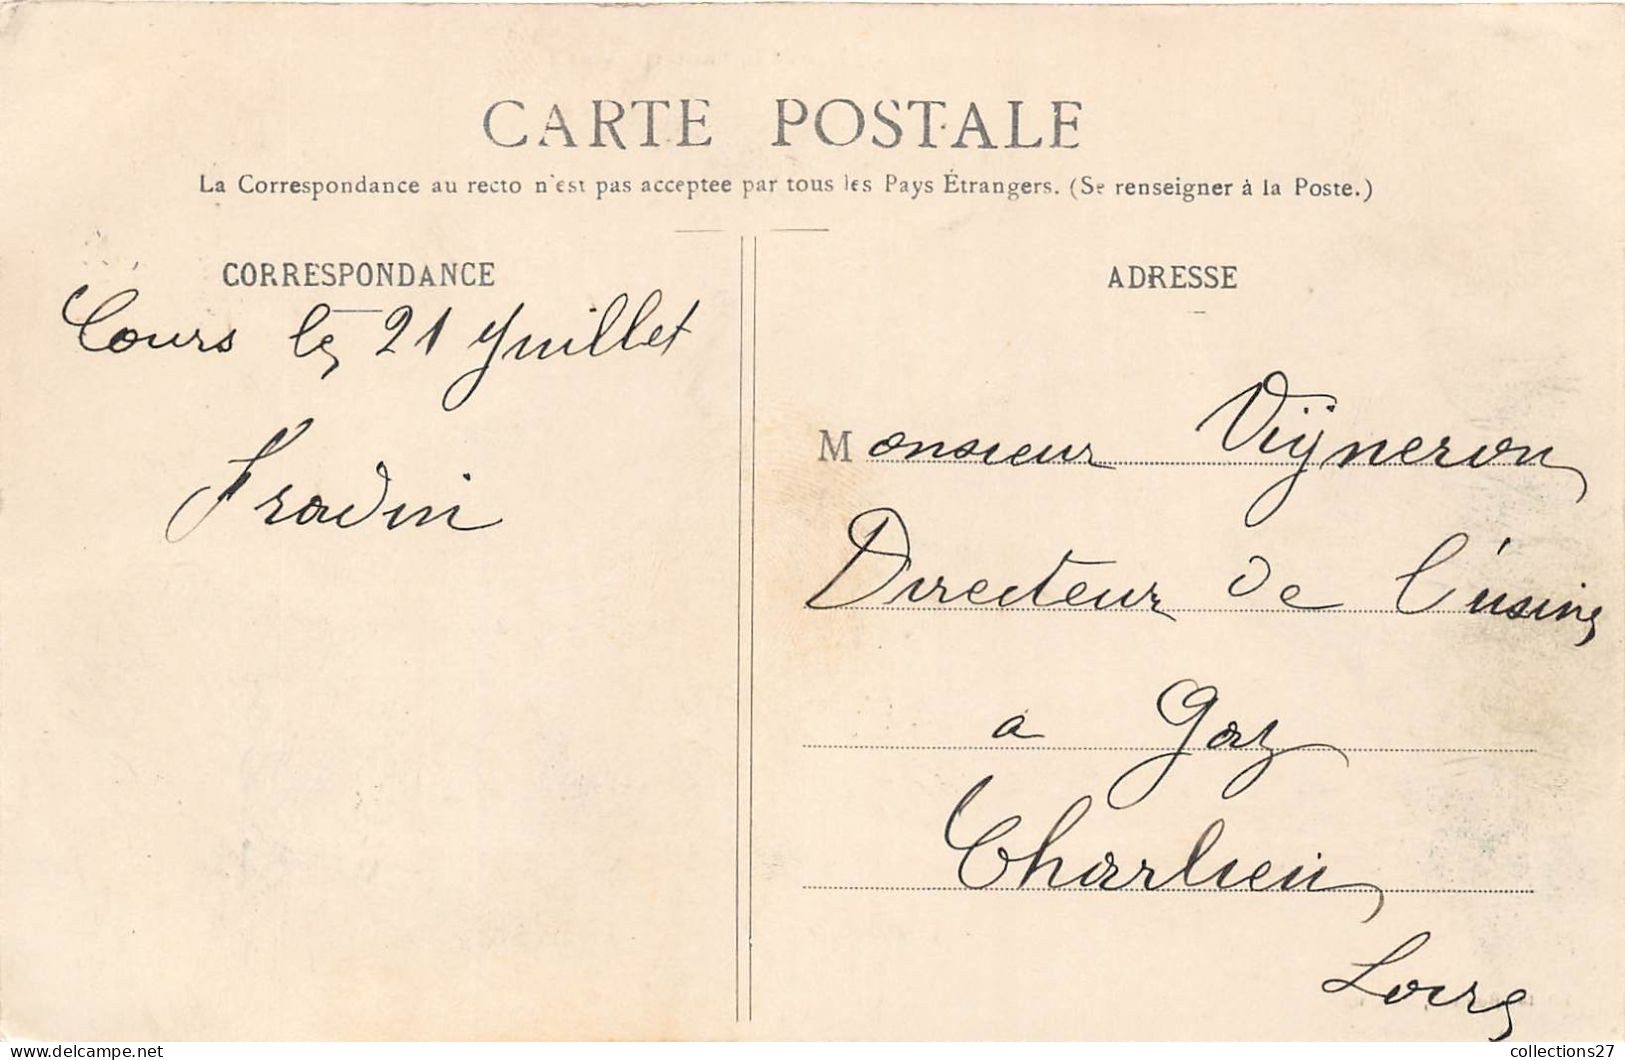 CARTE POSTALE
La Correspondance au recto n'est pas acceptee par tous les Pays Étrangers. (Se renseigner à la Poste.)
CORRESPONDANCE
Cours le 21 Juillet
Fradin
ADRESSE
Monsieur Vigneron
Directeur de l'usine
a gaz
Charlieu
Loire
collections27
delcampe.net